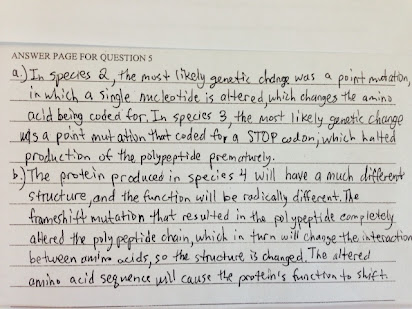 ANSWER PAGE FOR QUESTION 5
a.) In species 2, the most likely genetic change was a point mutation,
in which a single nucleotide is altered, which changes the amino
acid being coded for. In species 3, the most likely genetic change
was a point mutation that coded for a STOP codon, which halted
production of the polypeptide prematurely.
b.) The protein produced in species 4 will have a much different
structure, and the function will be radically different. The
frameshift mutation that resulted in the polypeptide completely
altered the polypeptide chain, which in turn will change the interaction
between amino acids, so the structure is changed. The altered
amino acid sequence will cause the protein's function to shift.